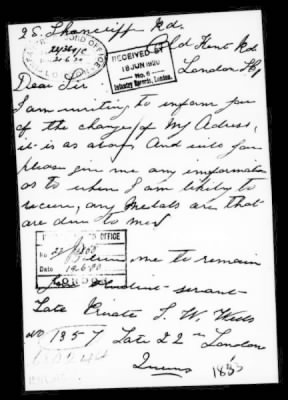 28. Shorncliff Rd.
Old Kent Rd
London SE
RECEIVED BY
18 JUN 1920
No. 6
Infantry Records, London.
Dear Sir
I am writing to inform you
of the changes of My Adress,
it is as above And will you
please give me any imformation
as to when I am likely to
receive, any Medals are that
are due to me
OFFICE
No
Date
me to remain
obedient servant
Late Private S. W. Webb
No 1357 Late 22nd London
Queens